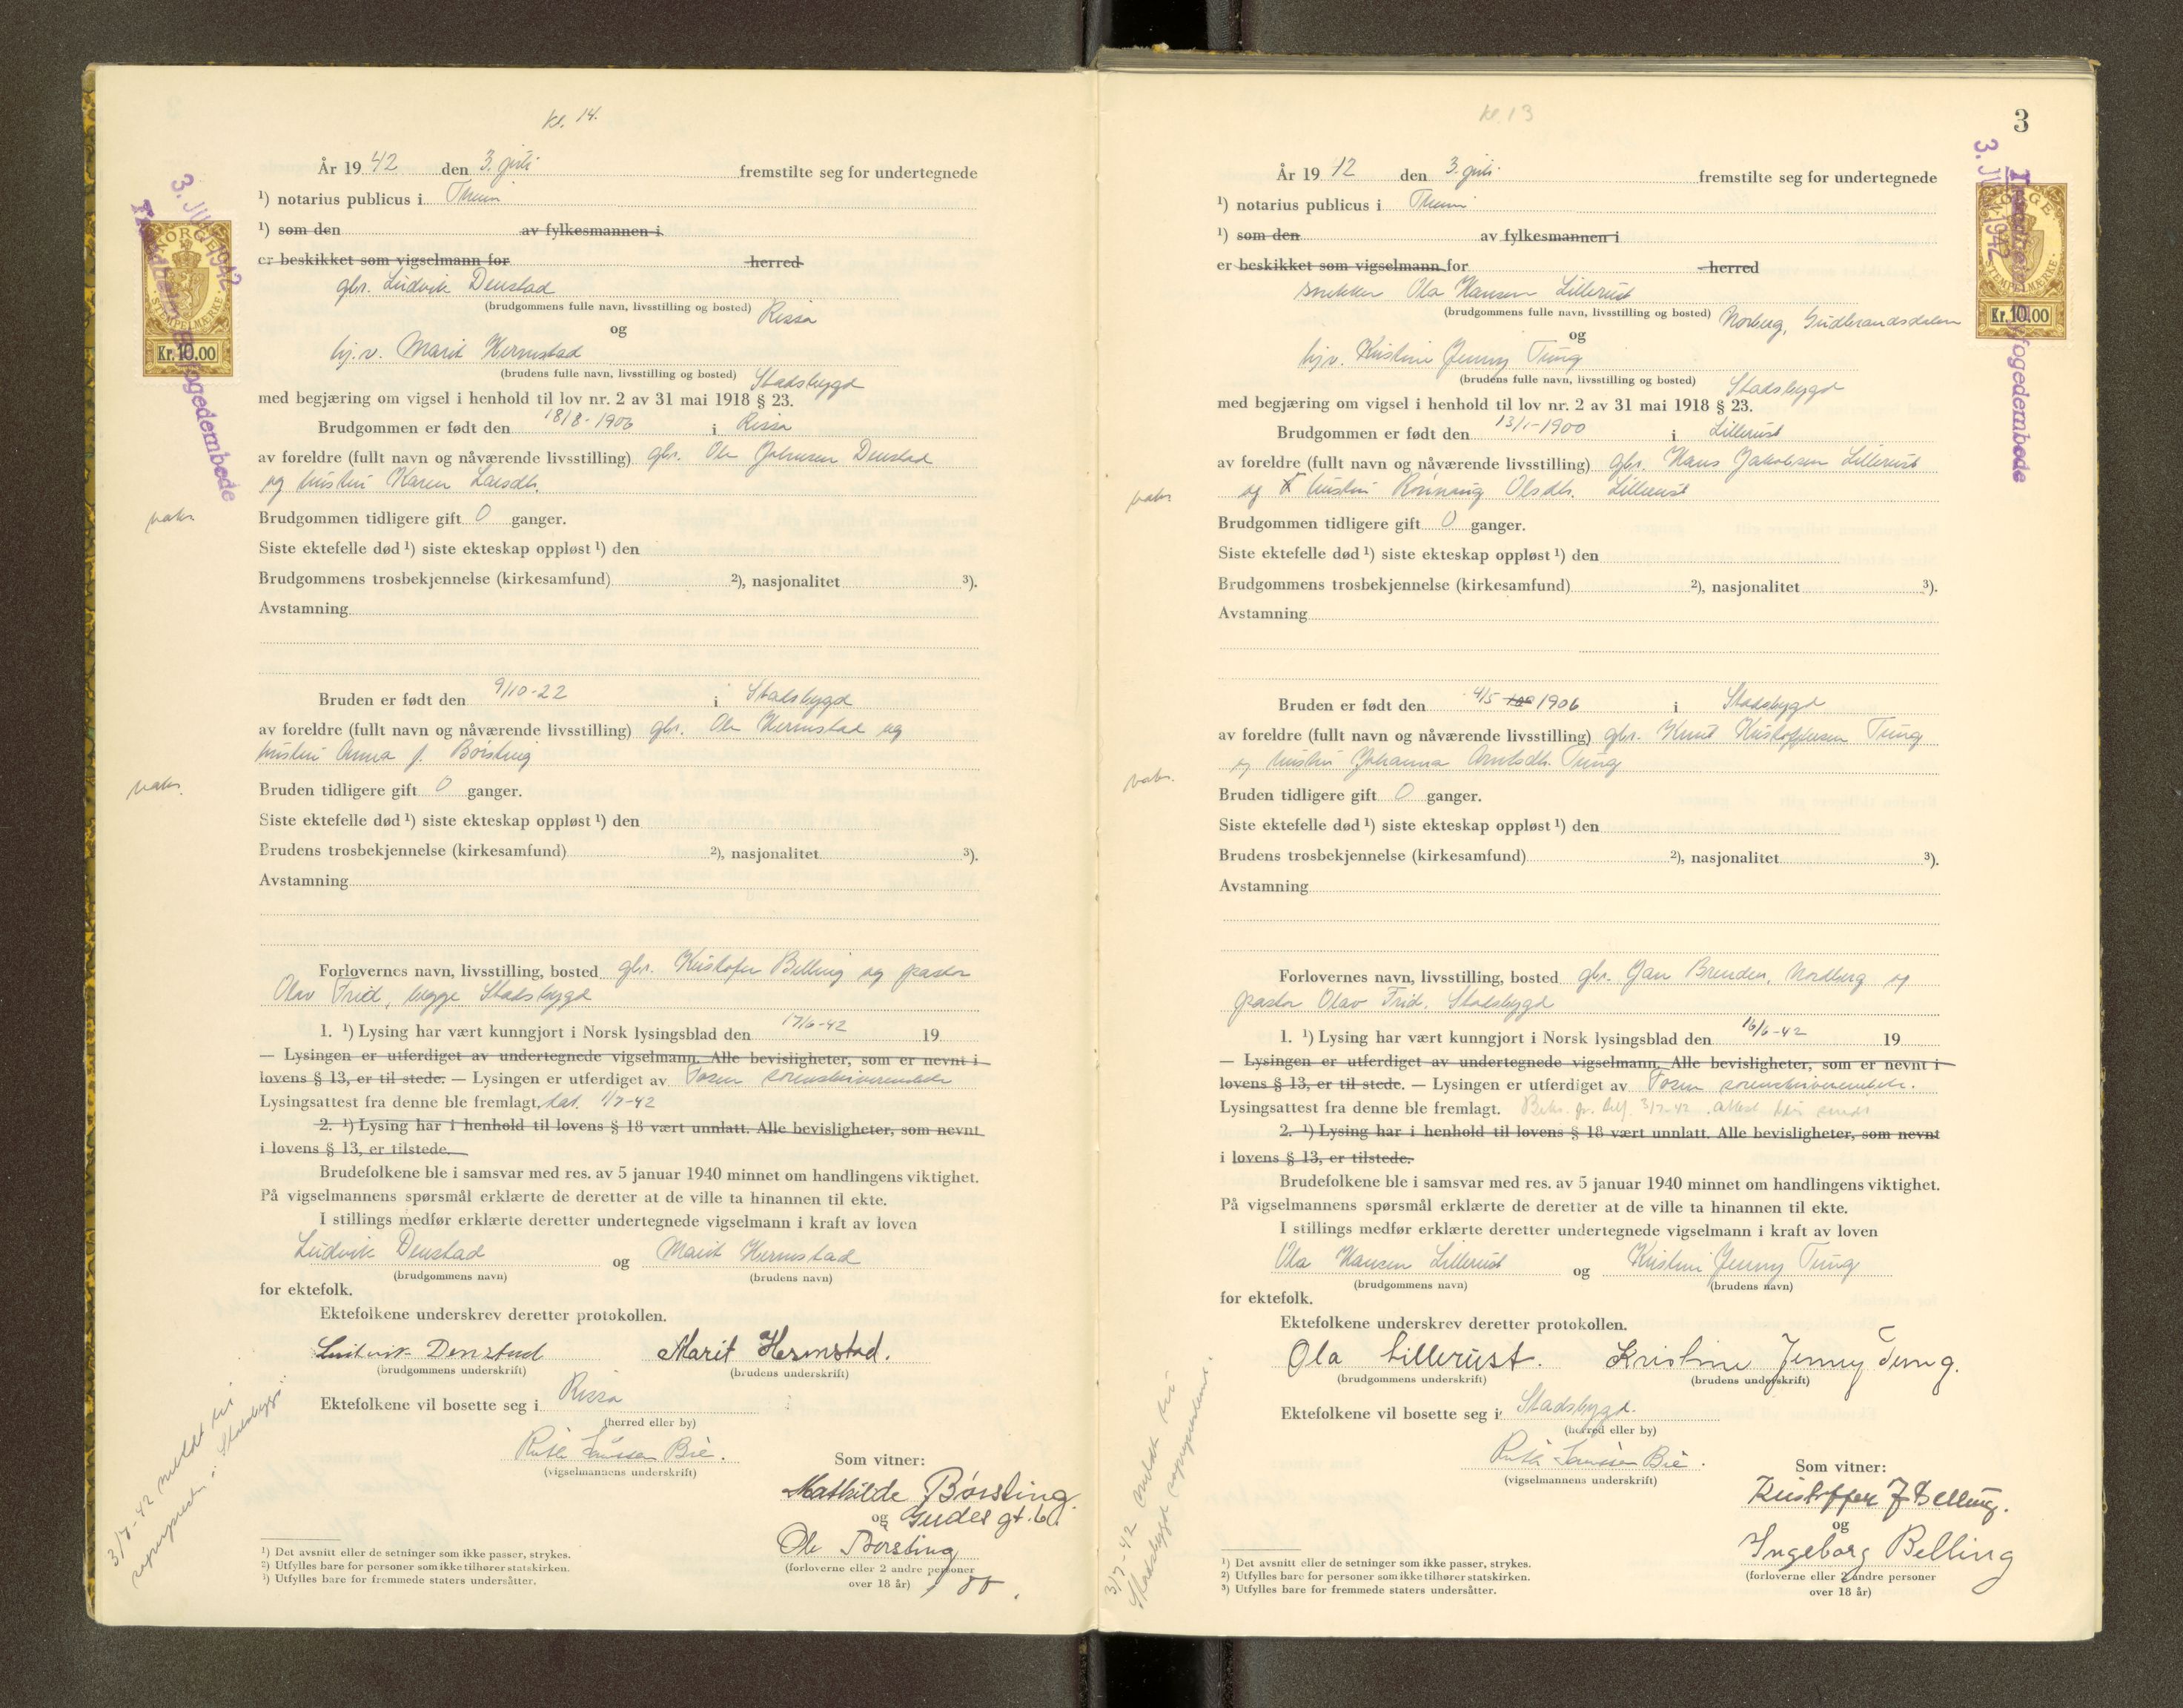 kl. 14.
År 19 42 den 3. juli fremstilte seg for undertegnede
¹) notarius publicus i Thrim
¹) som den av fylkesmannen i
er beskikket som vigselmann for herred
gbr. Ludvik Denstad
(brudgommens fulle navn, livsstilling og bosted) Rissa
og
hj.v. Marit Hermstad
(brudens fulle navn, livsstilling og bosted) Stadsbygd
med begjæring om vigsel i henhold til lov nr. 2 av 31 mai 1918 § 23.
Brudgommen er født den 18/8-1906 i Rissa
av foreldre (fullt navn og nåværende livsstilling) gbr. Ole Johnsen Denstad
og hustru Karen Larsdtr.
vaks.
Brudgommen tidligere gift 0 ganger.
Siste ektefelle død ¹) siste ekteskap oppløst ¹) den
Brudgommens trosbekjennelse (kirkesamfund) ²), nasjonalitet ³).
Avstamning
Bruden er født den 9/10-22 i Stadsbygd
av foreldre (fullt navn og nåværende livsstilling) gbr. Ole Hermstad og
hustru Anna f. Børsting
vaks.
Bruden tidligere gift 0 ganger.
Siste ektefelle død ¹) siste ekteskap oppløst ¹) den
Brudens trosbekjennelse (kirkesamfund) ²), nasjonalitet ³).
Avstamning
Forlovernes navn, livsstilling, bosted gbr. Kristofer Belling og pastor
Olav Frid, begge Stadsbygd
1. ¹) Lysing har vært kunngjort i Norsk lysingsblad den 17/6-42 19
— Lysingen er utferdiget av undertegnede vigselmann. Alle bevisligheter, som er nevnt i
lovens § 13, er til stede. — Lysingen er utferdiget av Fosen sorenskriverembede
Lysingsattest fra denne ble fremlagt, dat. 1/7-42
2. ¹) Lysing har i henhold til lovens § 18 vært unnlatt. Alle bevisligheter, som nevnt
i lovens § 13, er tilstede.
Brudefolkene ble i samsvar med res. av 5 januar 1940 minnet om handlingens viktighet.
På vigselmannens spørsmål erklærte de deretter at de ville ta hinannen til ekte.
I stillings medfør erklærte deretter undertegnede vigselmann i kraft av loven
Ludvik Denstad og Marit Hermstad
(brudgommens navn) (brudens navn)
for ektefolk.
Ektefolkene underskrev deretter protokollen.
Ludvik Denstad Marit Hermstad.
(brudgommens underskrift) (brudens underskrift)
Ektefolkene vil bosette seg i Rissa
(herred eller by)
Ruth Bie.
(vigselmannens underskrift)
Som vitner:
Mathilde Børsting
og Gudes gt. 6.
Ole Børsting
(forloverne eller 2 andre personer
over 18 år)
¹) Det avsnitt eller de setninger som ikke passer, strykes.
²) Utfylles bare for personer som ikke tilhører statskirken.
³) Utfylles bare for fremmede staters undersåtter.
3/7-42 meldt til
sognepresten i Stadsbygd.
NORGE
STEMPELMÆRKE
Kr. 10.00
3. JUL 1942
Trondheim Byfogedembede
3
kl. 13
År 19 42 den 3. juli fremstilte seg for undertegnede
¹) notarius publicus i Thrim
¹) som den av fylkesmannen i
er beskikket som vigselmann for herred
snekker Ola Hansen Lillerust
(brudgommens fulle navn, livsstilling og bosted) Norberg, Gudbrandsdalen
og
hj.v. Kristine Jenny Tung
(brudens fulle navn, livsstilling og bosted) Stadsbygd
med begjæring om vigsel i henhold til lov nr. 2 av 31 mai 1918 § 23.
Brudgommen er født den 13/1-1900 i Lillerust
av foreldre (fullt navn og nåværende livsstilling) gbr. Hans Jakobsen Lillerust
og hustru Rønnaug Olsdtr. Lillerust
vaks.
Brudgommen tidligere gift 0 ganger.
Siste ektefelle død ¹) siste ekteskap oppløst ¹) den
Brudgommens trosbekjennelse (kirkesamfund) ²), nasjonalitet ³).
Avstamning
Bruden er født den 4/5 1906 i Stadsbygd
av foreldre (fullt navn og nåværende livsstilling) gbr. Knut Kristoffersen Tung
og hustru Johanna Arntsdtr. Tung
vaks.
Bruden tidligere gift 0 ganger.
Siste ektefelle død ¹) siste ekteskap oppløst ¹) den
Brudens trosbekjennelse (kirkesamfund) ²), nasjonalitet ³).
Avstamning
Forlovernes navn, livsstilling, bosted gbr. Jan Brenden, Nordberg og
pastor Olav Frid, Stadsbygd
1. ¹) Lysing har vært kunngjort i Norsk lysingsblad den 16/6-42 19
— Lysingen er utferdiget av undertegnede vigselmann. Alle bevisligheter, som er nevnt i
lovens § 13, er til stede. — Lysingen er utferdiget av Fosen sorenskriverembede.
Lysingsattest fra denne ble fremlagt. Bekr. pr. tlf. 3/7-42. attest
2. ¹) Lysing har i henhold til lovens § 18 vært unnlatt. Alle bevisligheter, som nevnt
i lovens § 13, er tilstede.
Brudefolkene ble i samsvar med res. av 5 januar 1940 minnet om handlingens viktighet.
På vigselmannens spørsmål erklærte de deretter at de ville ta hinannen til ekte.
I stillings medfør erklærte deretter undertegnede vigselmann i kraft av loven
Ola Hansen Lillerust og Kristine Jenny Tung
(brudgommens navn) (brudens navn)
for ektefolk.
Ektefolkene underskrev deretter protokollen.
Ola Lillerust. Kristine Jenny Tung.
(brudgommens underskrift) (brudens underskrift)
Ektefolkene vil bosette seg i Stadsbygd.
(herred eller by)
Ruth Bie.
(vigselmannens underskrift)
Som vitner:
Kristoffer J Belling.
og
Ingeborg Belling
(forloverne eller 2 andre personer
over 18 år)
¹) Det avsnitt eller de setninger som ikke passer, strykes.
²) Utfylles bare for personer som ikke tilhører statskirken.
³) Utfylles bare for fremmede staters undersåtter.
3/7-42 meldt til
Stadsbygd sogneprestemb.
NORGE
STEMPELMÆRKE
Kr. 10.00
3. JUL 1942
Trondheim Byfogedembede